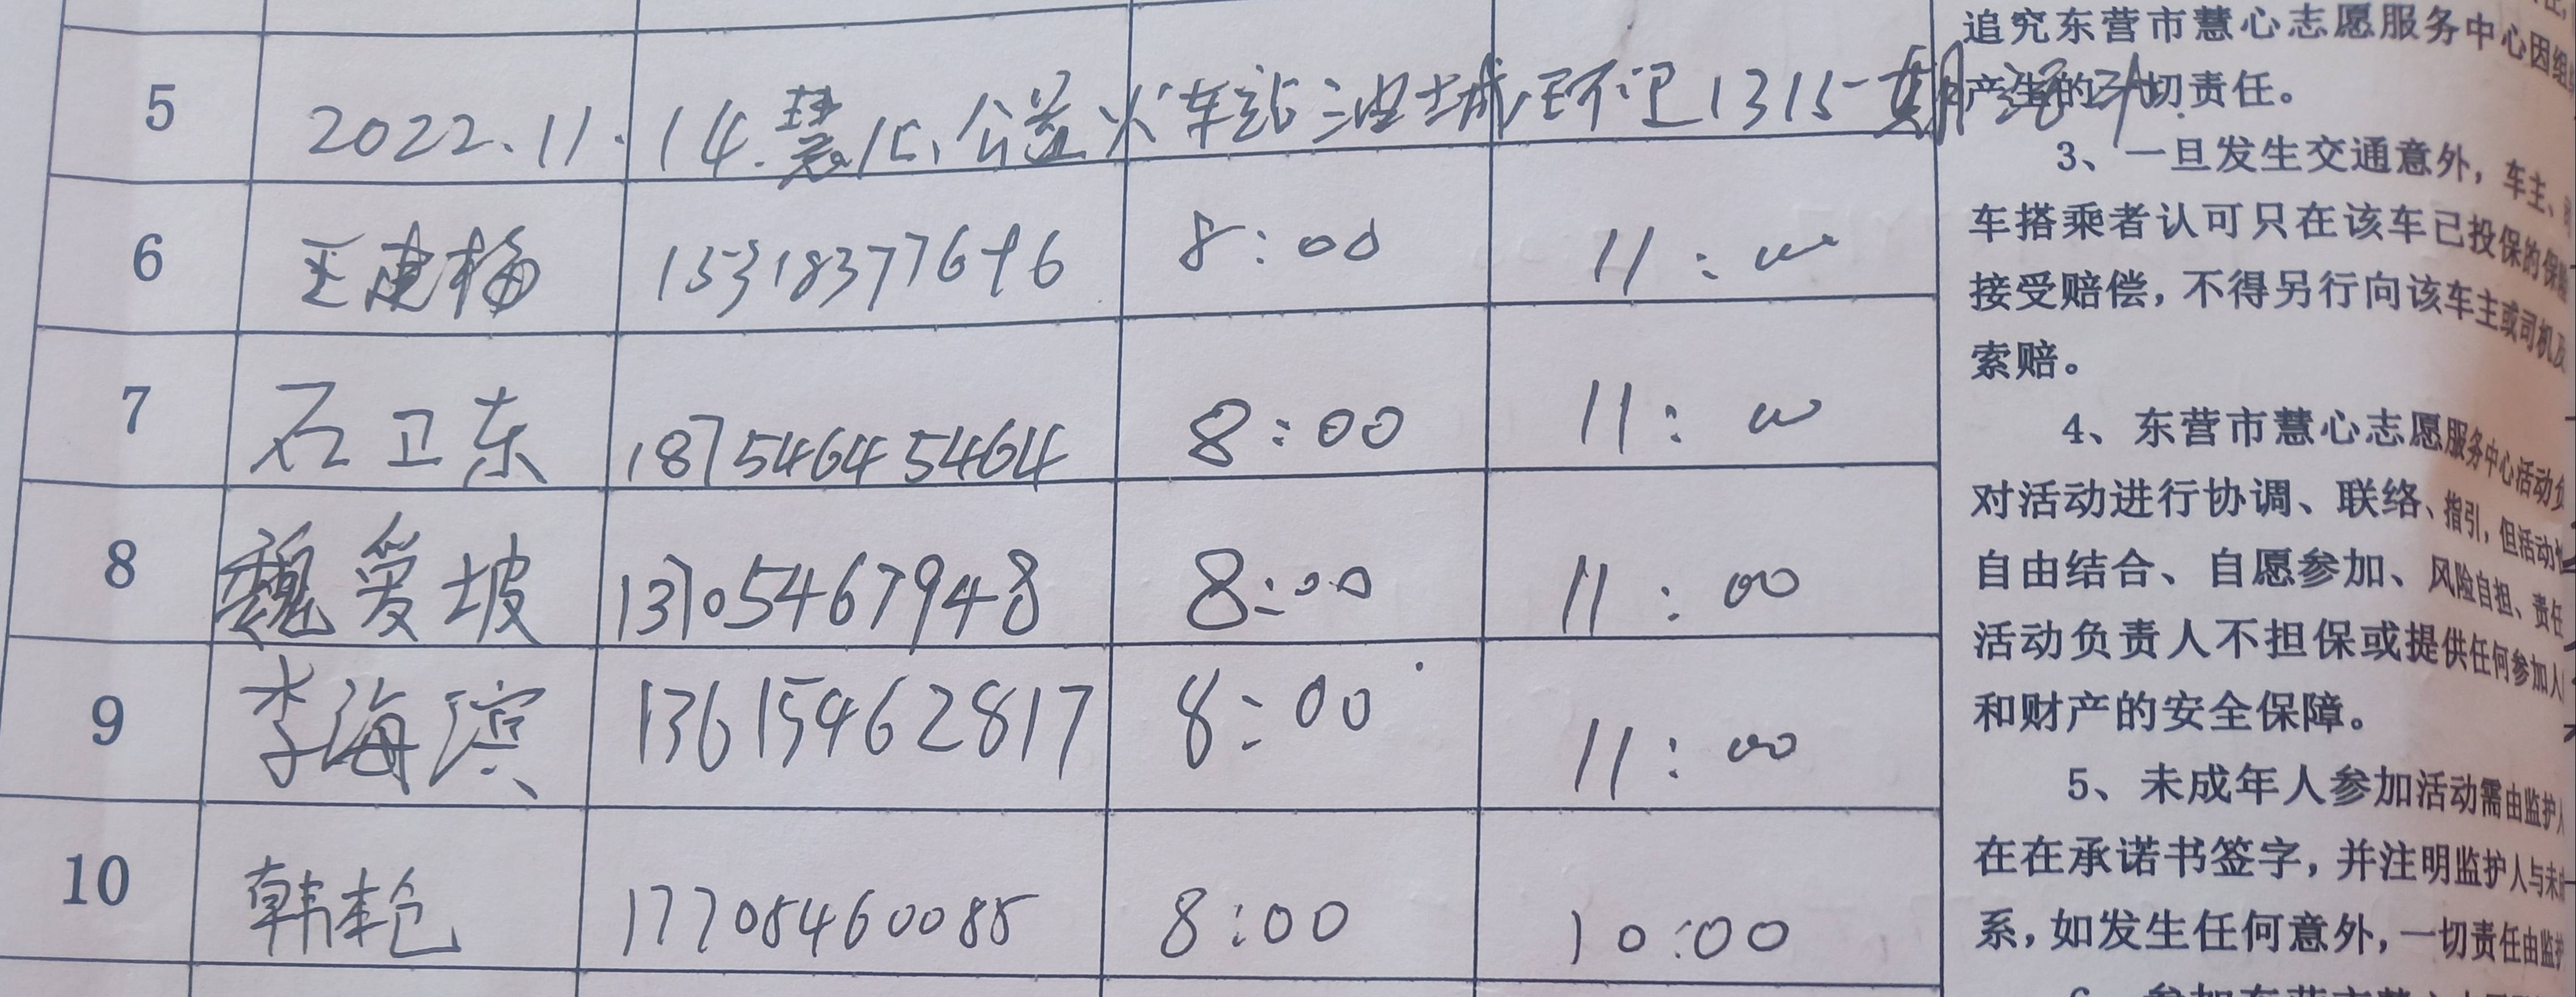 5 2022.11.14.慧心公益火车站油城环卫1315期活动
6 王建梅 15318377696 8:00 11:00
7 石卫东 18754645464 8:00 11:00
8 魏爱坡 13705467948 8:00 11:00
9 李海滨 13615462817 8:00 11:00
10 韩 17705460085 8:00 10:00
追究东营市慧心志愿服务中心因组
产生的一切责任。
3、一旦发生交通意外，车主、
车搭乘者认可只在该车已投保的保
接受赔偿，不得另行向该车主或司机及
索赔。
4、东营市慧心志愿服务中心活动负
对活动进行协调、联络、指引，但活动
自由结合、自愿参加、风险自担、责任
活动负责人不担保或提供任何参加人
和财产的安全保障。
5、未成年人参加活动需由监护人
在在承诺书签字，并注明监护人与未
系，如发生任何意外，一切责任由监护